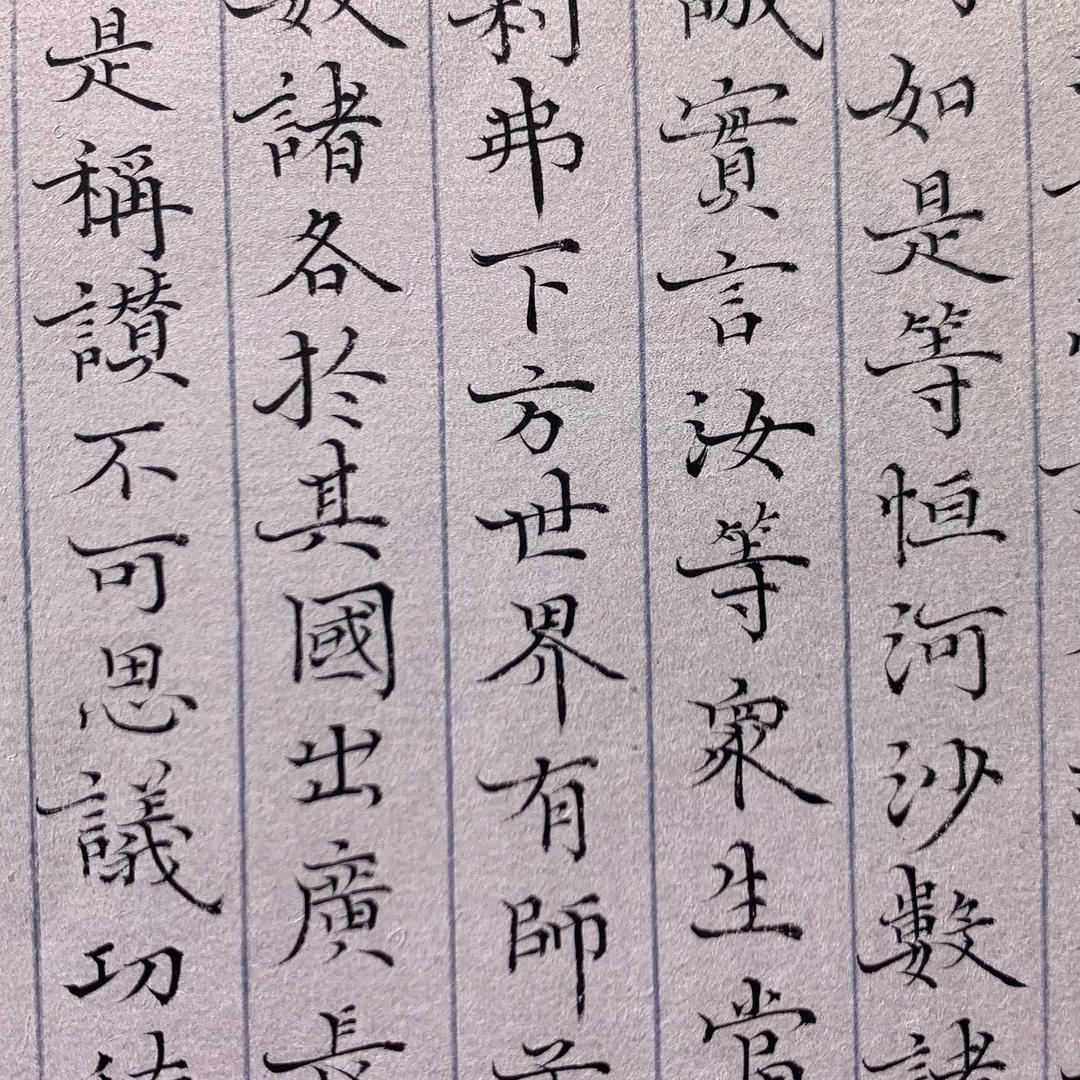 如是等恒河沙數諸
誠實言汝等衆生當
利弗下方世界有師子
數諸各於其國出廣長
是稱讃不可思議功德